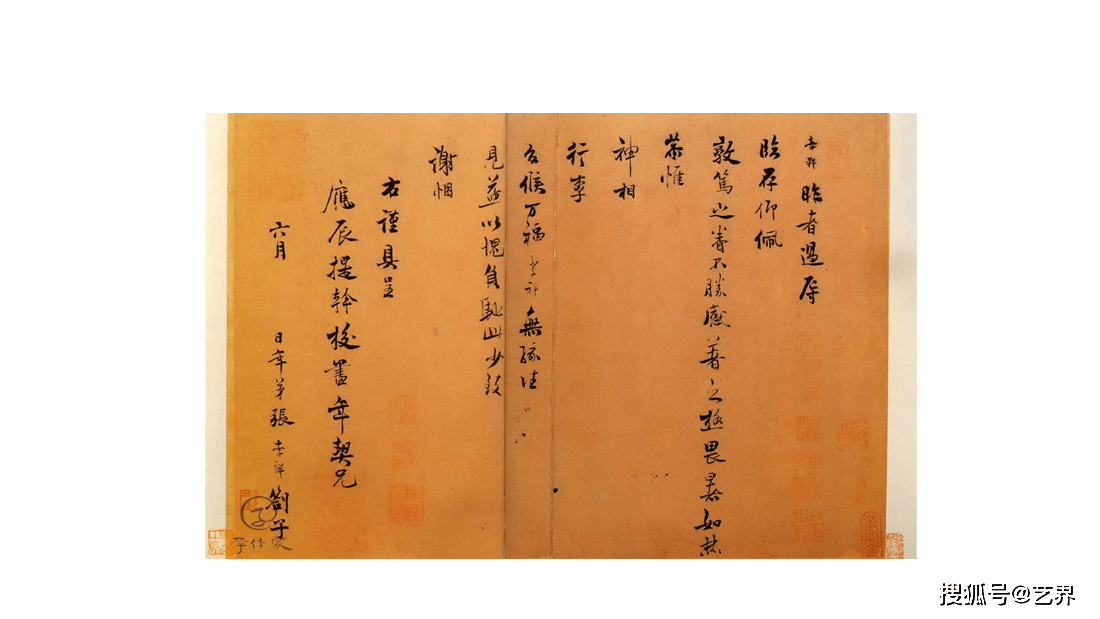 孝祥 昨者過辱
臨存仰佩
敦篤之眷不勝感著之極畏暑如焚
恭惟
神相
行李
台候万福孝祥無緣往
見益以愧負馳此少致
謝悃
右謹具呈
應辰提幹校書年契兄
六月 日年弟張孝祥劄子
字体家
搜狐号@艺界